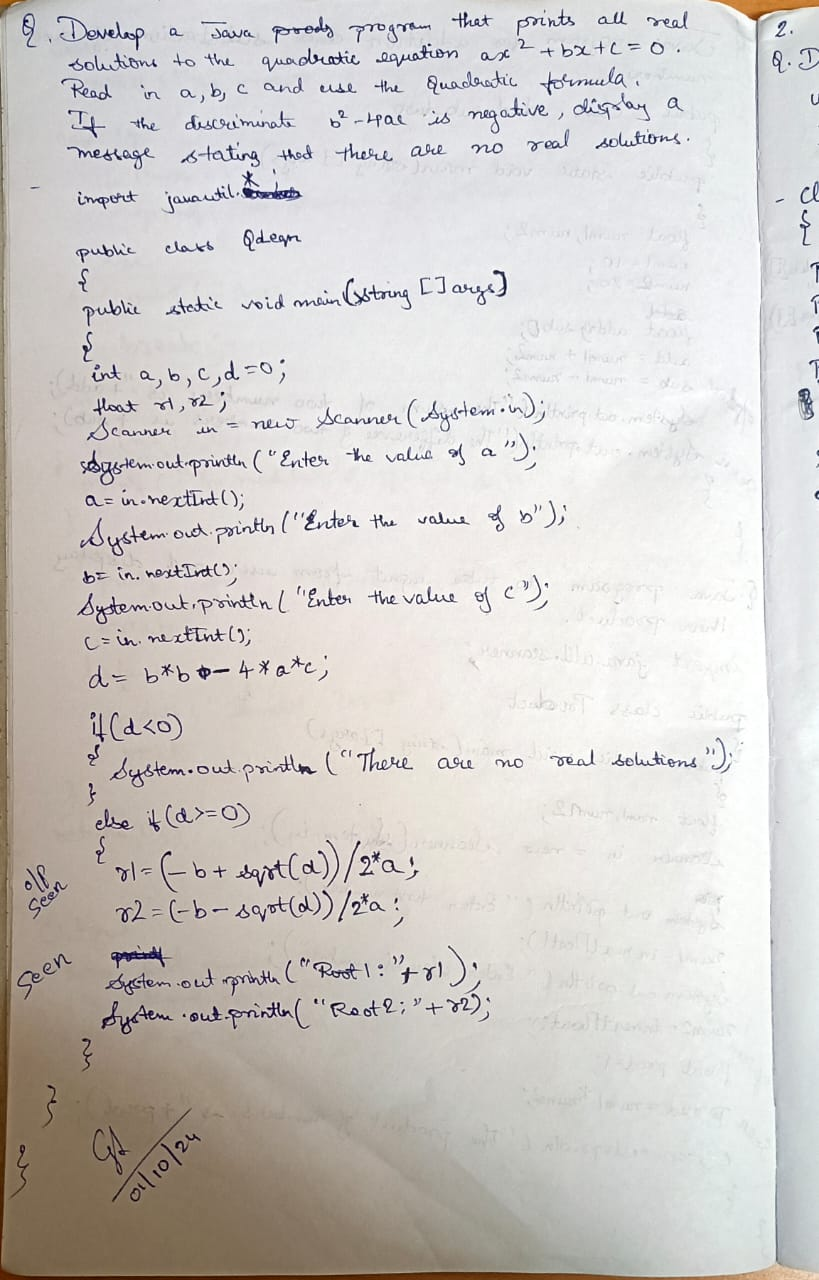 Q. Develop a Java program that prints all real
solutions to the quadratic equation ax² + bx + c = 0.
Read in a, b, c and use the Quadratic formula.
If the discriminate b² - 4ac is negative, display a
message stating that there are no real solutions.
- import java.util.*;
public class Qdeqn
{
public static void main(string [] args)
{
int a, b, c, d = 0;
float r1, r2;
Scanner in = new Scanner(System.in);
System.out.println("Enter the value of a");
a = in.nextInt();
System.out.println("Enter the value of b");
b = in.nextInt();
System.out.println("Enter the value of c");
c = in.nextInt();
d = b*b - 4*a*c;
if(d<0)
{ System.out.println("There are no real solutions");
}
else if(d>=0)
{
r1 = (-b + sqrt(d))/2*a;
r2 = (-b - sqrt(d))/2*a;
o/p
seen
System.out.println("Root1: "+r1);
System.out.println("Root2; "+r2);
seen
}
}
}
01/10/24
2.
Q. D
- cl
{